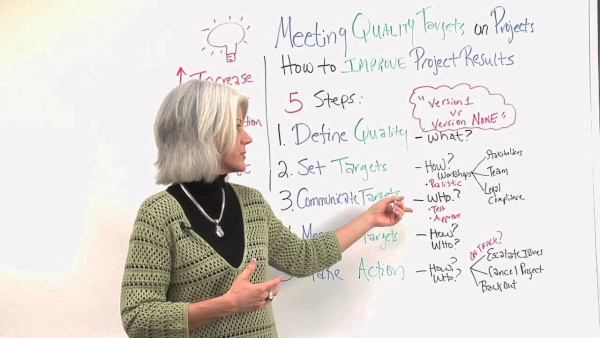 Meeting QUALITY Targets on Projects
How to IMPROVE Project Results
↑ Increase
5 Steps:
"Version 1
vs
Version NONE"
1. Define Quality - What?
2. Set Targets - How?
Workshops
• Realistic
Stakeholders
Team
Legal
Compliance
3. Communicate Targets - WHO?
• Test
• Approve
Targets - How?
Who?
Action - How?
Who?
ON TRACK?
Escalate Issues
Cancel Project
Back Out